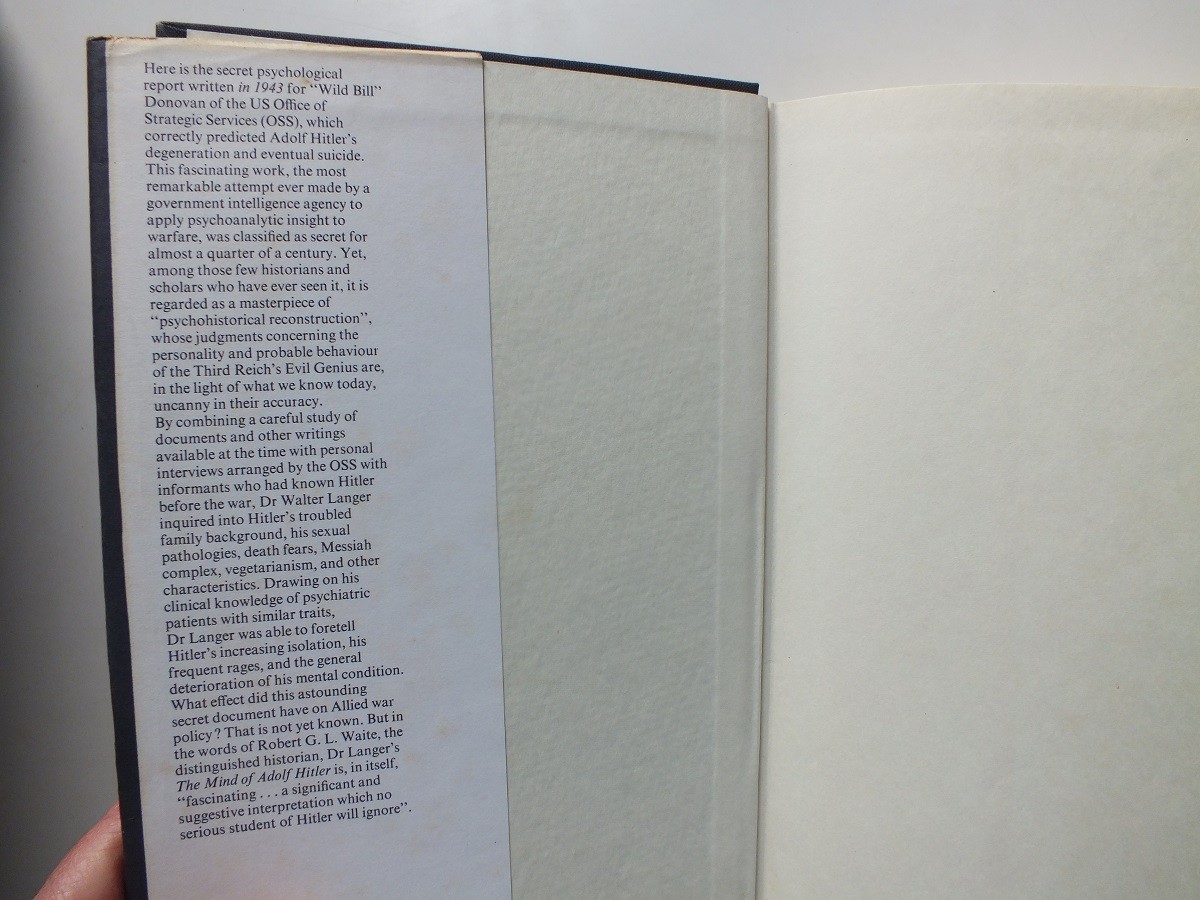 Here is the secret psychological
report written in 1943 for “Wild Bill”
Donovan of the US Office of
Strategic Services (OSS), which
correctly predicted Adolf Hitler’s
degeneration and eventual suicide.
This fascinating work, the most
remarkable attempt ever made by a
government intelligence agency to
apply psychoanalytic insight to
warfare, was classified as secret for
almost a quarter of a century. Yet,
among those few historians and
scholars who have ever seen it, it is
regarded as a masterpiece of
“psychohistorical reconstruction”,
whose judgments concerning the
personality and probable behaviour
of the Third Reich’s Evil Genius are,
in the light of what we know today,
uncanny in their accuracy.
By combining a careful study of
documents and other writings
available at the time with personal
interviews arranged by the OSS with
informants who had known Hitler
before the war, Dr Walter Langer
inquired into Hitler’s troubled
family background, his sexual
pathologies, death fears, Messiah
complex, vegetarianism, and other
characteristics. Drawing on his
clinical knowledge of psychiatric
patients with similar traits,
Dr Langer was able to foretell
Hitler’s increasing isolation, his
frequent rages, and the general
deterioration of his mental condition.
What effect did this astounding
secret document have on Allied war
policy? That is not yet known. But in
the words of Robert G. L. Waite, the
distinguished historian, Dr Langer’s
The Mind of Adolf Hitler is, in itself,
“fascinating . . . a significant and
suggestive interpretation which no
serious student of Hitler will ignore”.